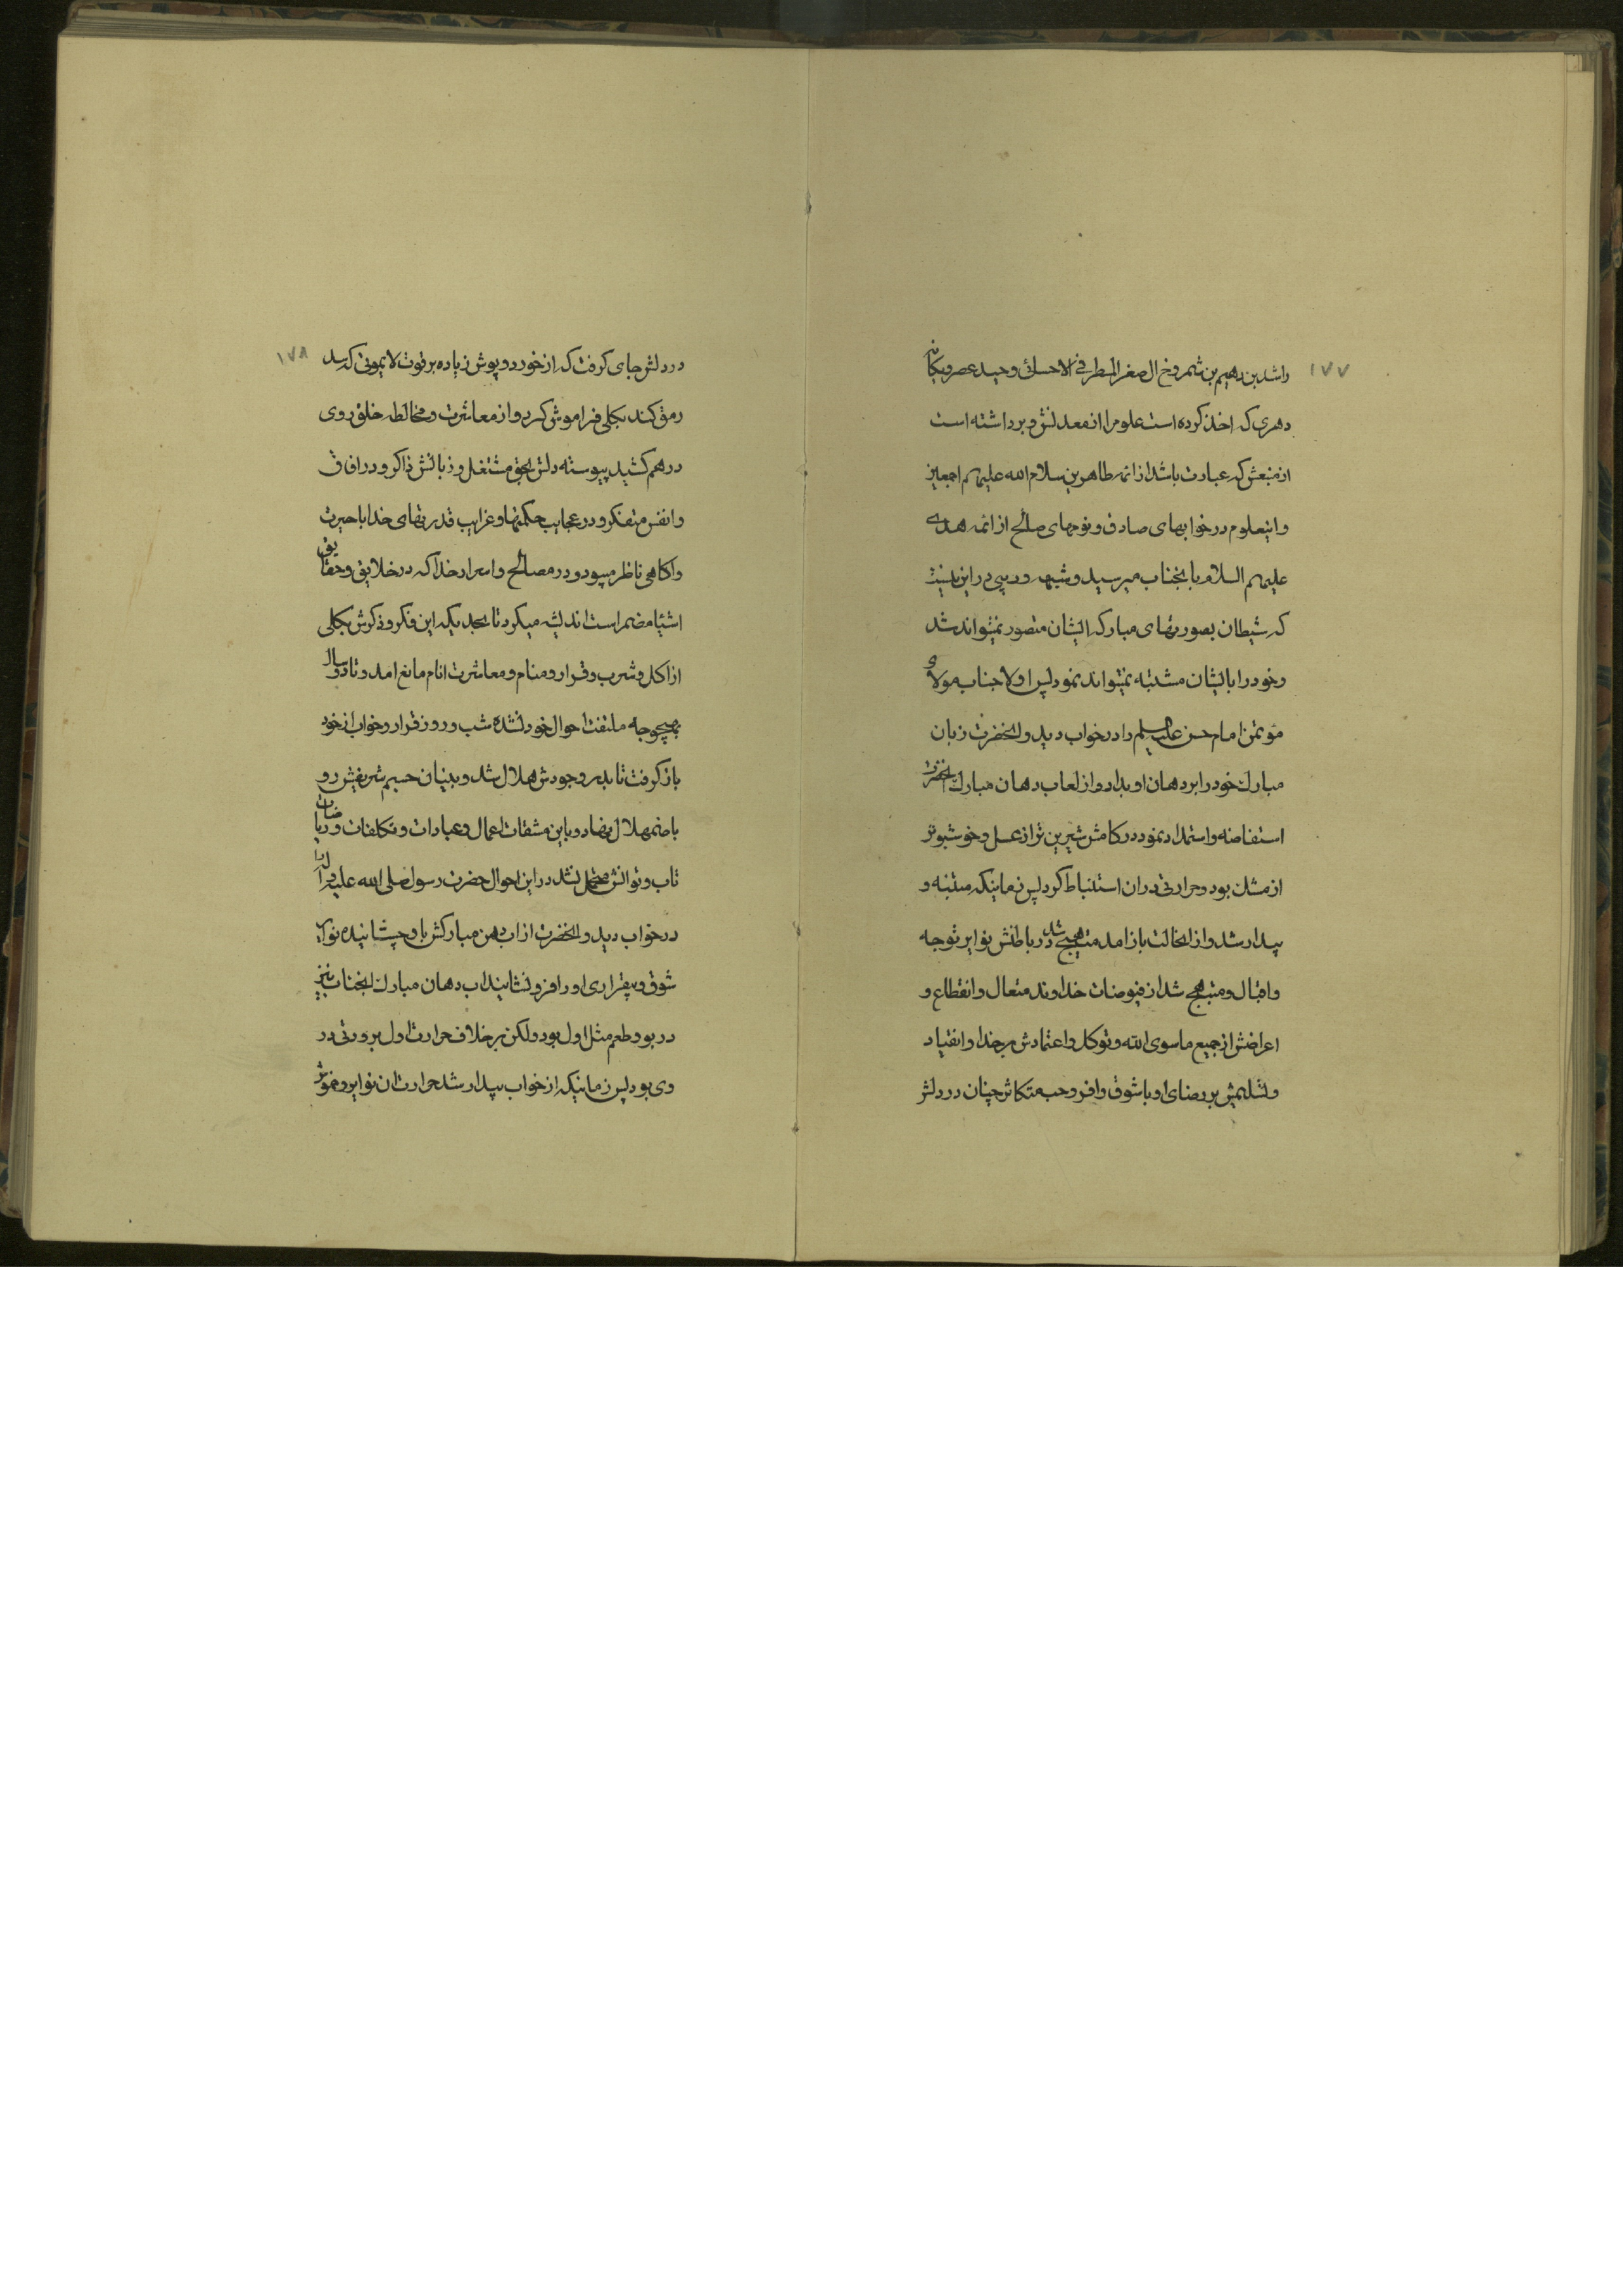 ١٧٧
راشد بن دهیم بن شمروخ ال صقر المطرفی الاحسائی وحید عصر و یکانه
دهری که اخذ کرده است علوم را از معدنش و برداشته است
از منبعش که عبارت باشد از ائمه طاهرین سلام الله علیهم اجمعین
و اینعلوم در خوابهای صادق و نومهای صالح از ائمه هدی
علیهم السلام بانجناب میرسید و شبهه و ریبی در این نیست
که شیطان بصورتهای مبارکه ایشان متصور نمیتواند شد
و خود را بایشان مشتبه نمیتواند نمود پس اولا جناب مولای
مؤتمن امام حسن علیه السلام را در خواب دید و انحضرت زبان
مبارک خود را بر دهان او بداد و از لعاب دهان مبارک انحضرت
استفاضه و استمداد نمود در کامش شیرین تر از عسل و خوشبوتر
از مشک بود و حرارتی در ان استنباط کرد پس زمانیکه متنبه و
بیدار شد و از انحالت باز امد متهیج شد در باطنش نوایر توجه
و اقبال و مبتهج شد از فیوضات خداوند متعال و انقطاع و
اعراضش از جمیع ما سوی الله و توکل و اعتمادش بر خدا و انقیاد
و تسلیمش بر رضای او با شوق وافر و حب متکاثر چنان در دلش
١٧٨
در دلش جای کرفت که از خورد و پوش زیاده بر قوت لا یموتی که سد
رمق کند بکلی فراموش کرد و از معاشرت و مخالطه خلق روی
در هم کشید پیوسته دلش بحق مشتغل و زبانش ذاکر و در افاق
و انفس متفکر و در عجایب حکمتها و غرایب قدرتهای خدا با حیرت
و اکاهی ناظر میبود و در مصالح و اسرار خدا که در خلایق و حقایق
اشیا مضمر است اندیشه میکرد تا بحدیکه این فکر و ذکرش بکلی
از اکل و شرب و قرار و منام و معاشرت انام مانع امد و تا دو سال
بهیچوجه ملتفت احوال خود نشده شب و روز قرار و خواب از خود
باز کرفت تا بدر وجودش هلال شد و بنیان جسم شریفش رو
باضمحلال نهاد و باین مشقات اعمال و عبادات و تکلفات و ریاضات
تاب و توانش مضمحل نشد در این احوال حضرت رسول صلی الله علیه و اله را
در خواب دید و انحضرت از اب دهن مبارکش باو چشانیده نوایر
شوق و بیقراری او را فرو نشانید اب دهان مبارک انجناب نیز
در بو و طعم مثل اول بود ولکن بر خلاف حرارت اول برودتی در
وی بود پس زمانیکه از خواب بیدار شد حرارت ان نوایر و